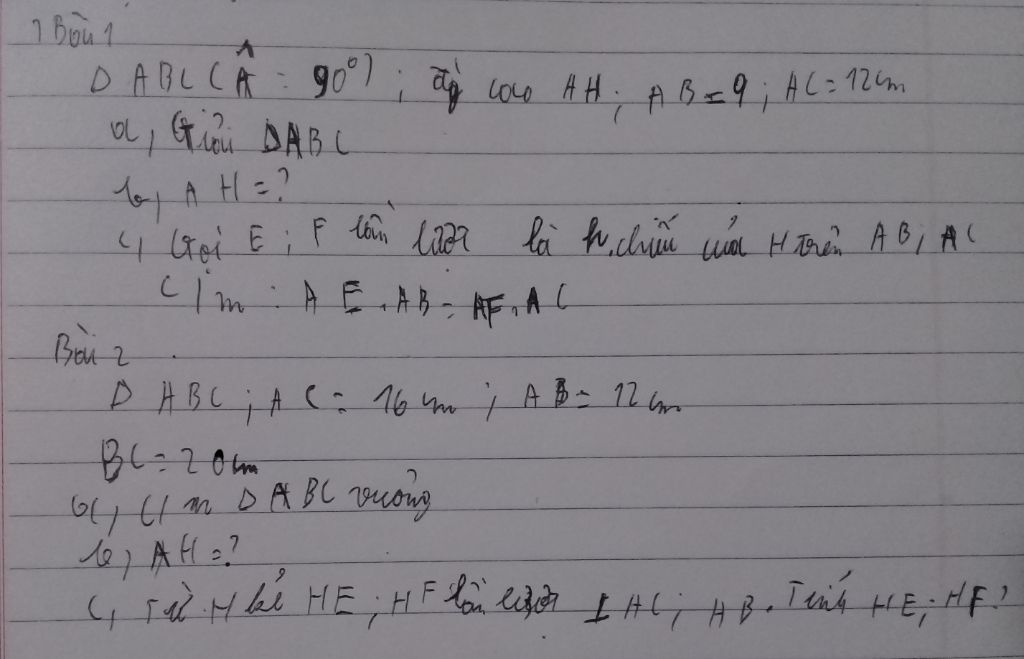 Bài 1
Δ ABC (Â = 90°) ; đg cao AH ; AB = 9 ; AC = 12cm
a, Giải ΔABC
b, AH = ?
c, Gọi E ; F lần lượt là h.chiếu của H trên AB ; AC
C/m : AE . AB = AF . AC
Bài 2
Δ ABC ; AC = 16 cm ; AB = 12 cm
BC = 20cm
a, C/m Δ ABC vuông
b, AH = ?
c, Từ H kẻ HE ; HF lần lượt ⊥ AC ; AB . Tính HE ; HF ?